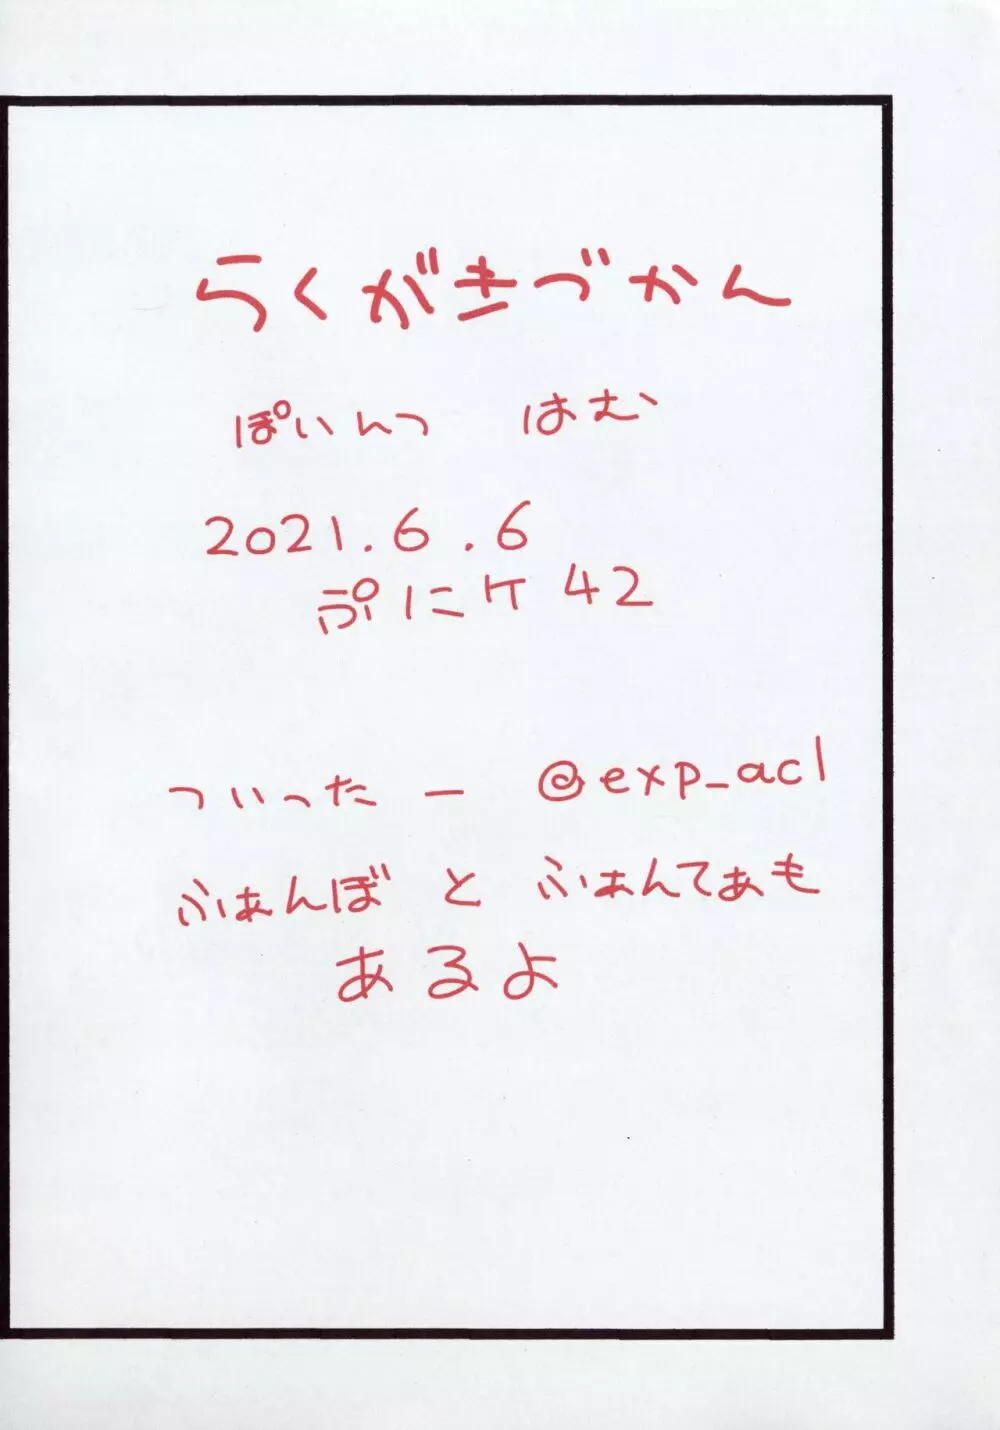 らくがきづかん
ぽいんつ はむ
2021.6.6
ぷにケ42
ついったー @exp_acl
ふぁんぼとふぁんてぁも
あるよ